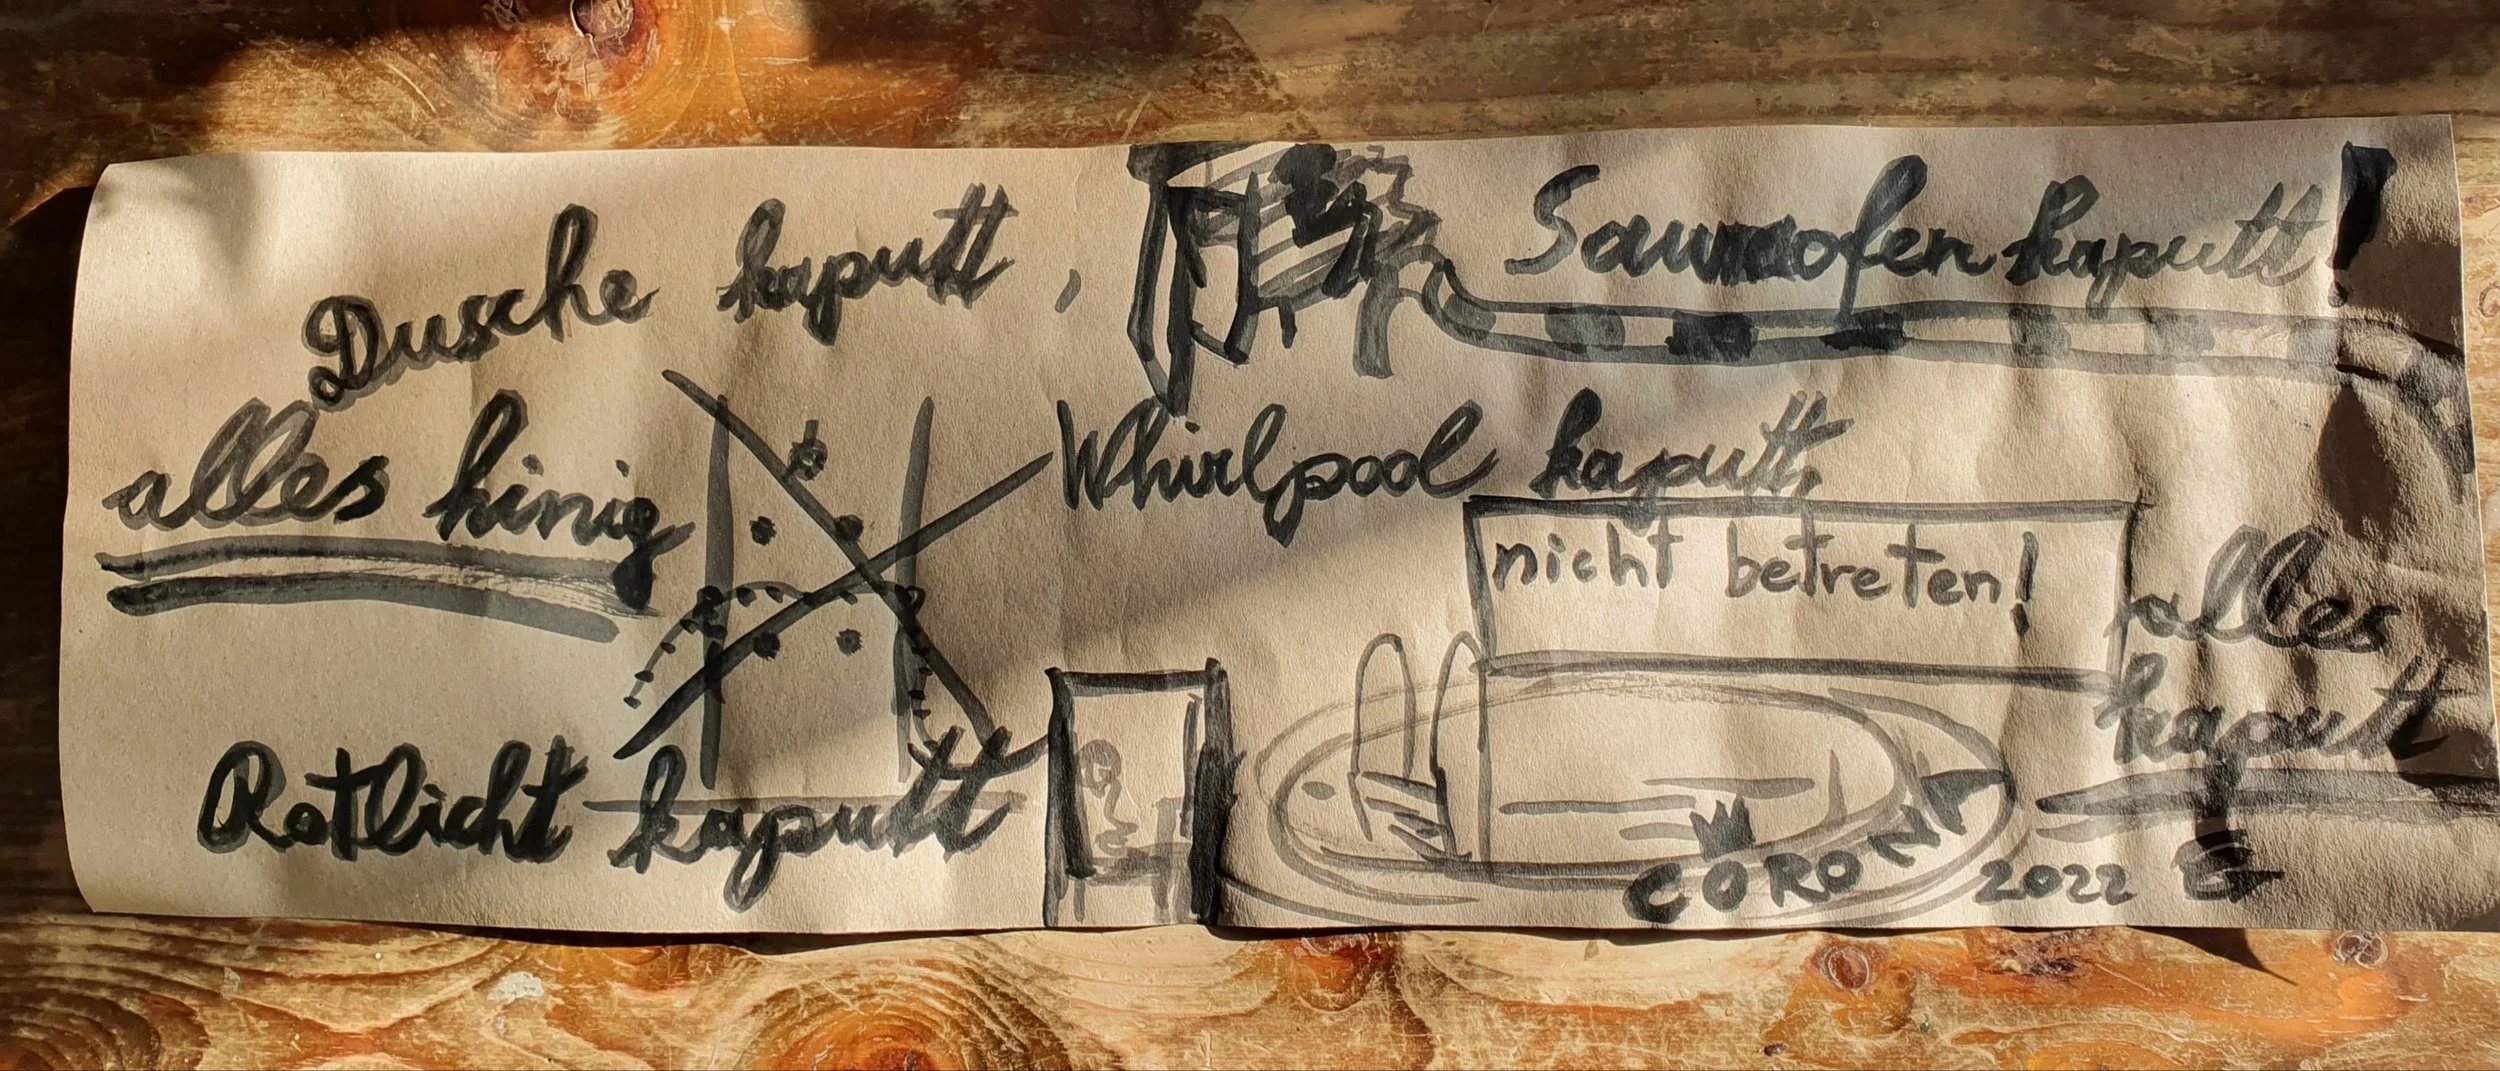 Dusche kaputt,
Saunaofen kaputt!
alles hinig
Whirlpool kaputt,
nicht betreten!
alles
kaputt
Rotlicht kaputt
CORONA
2022